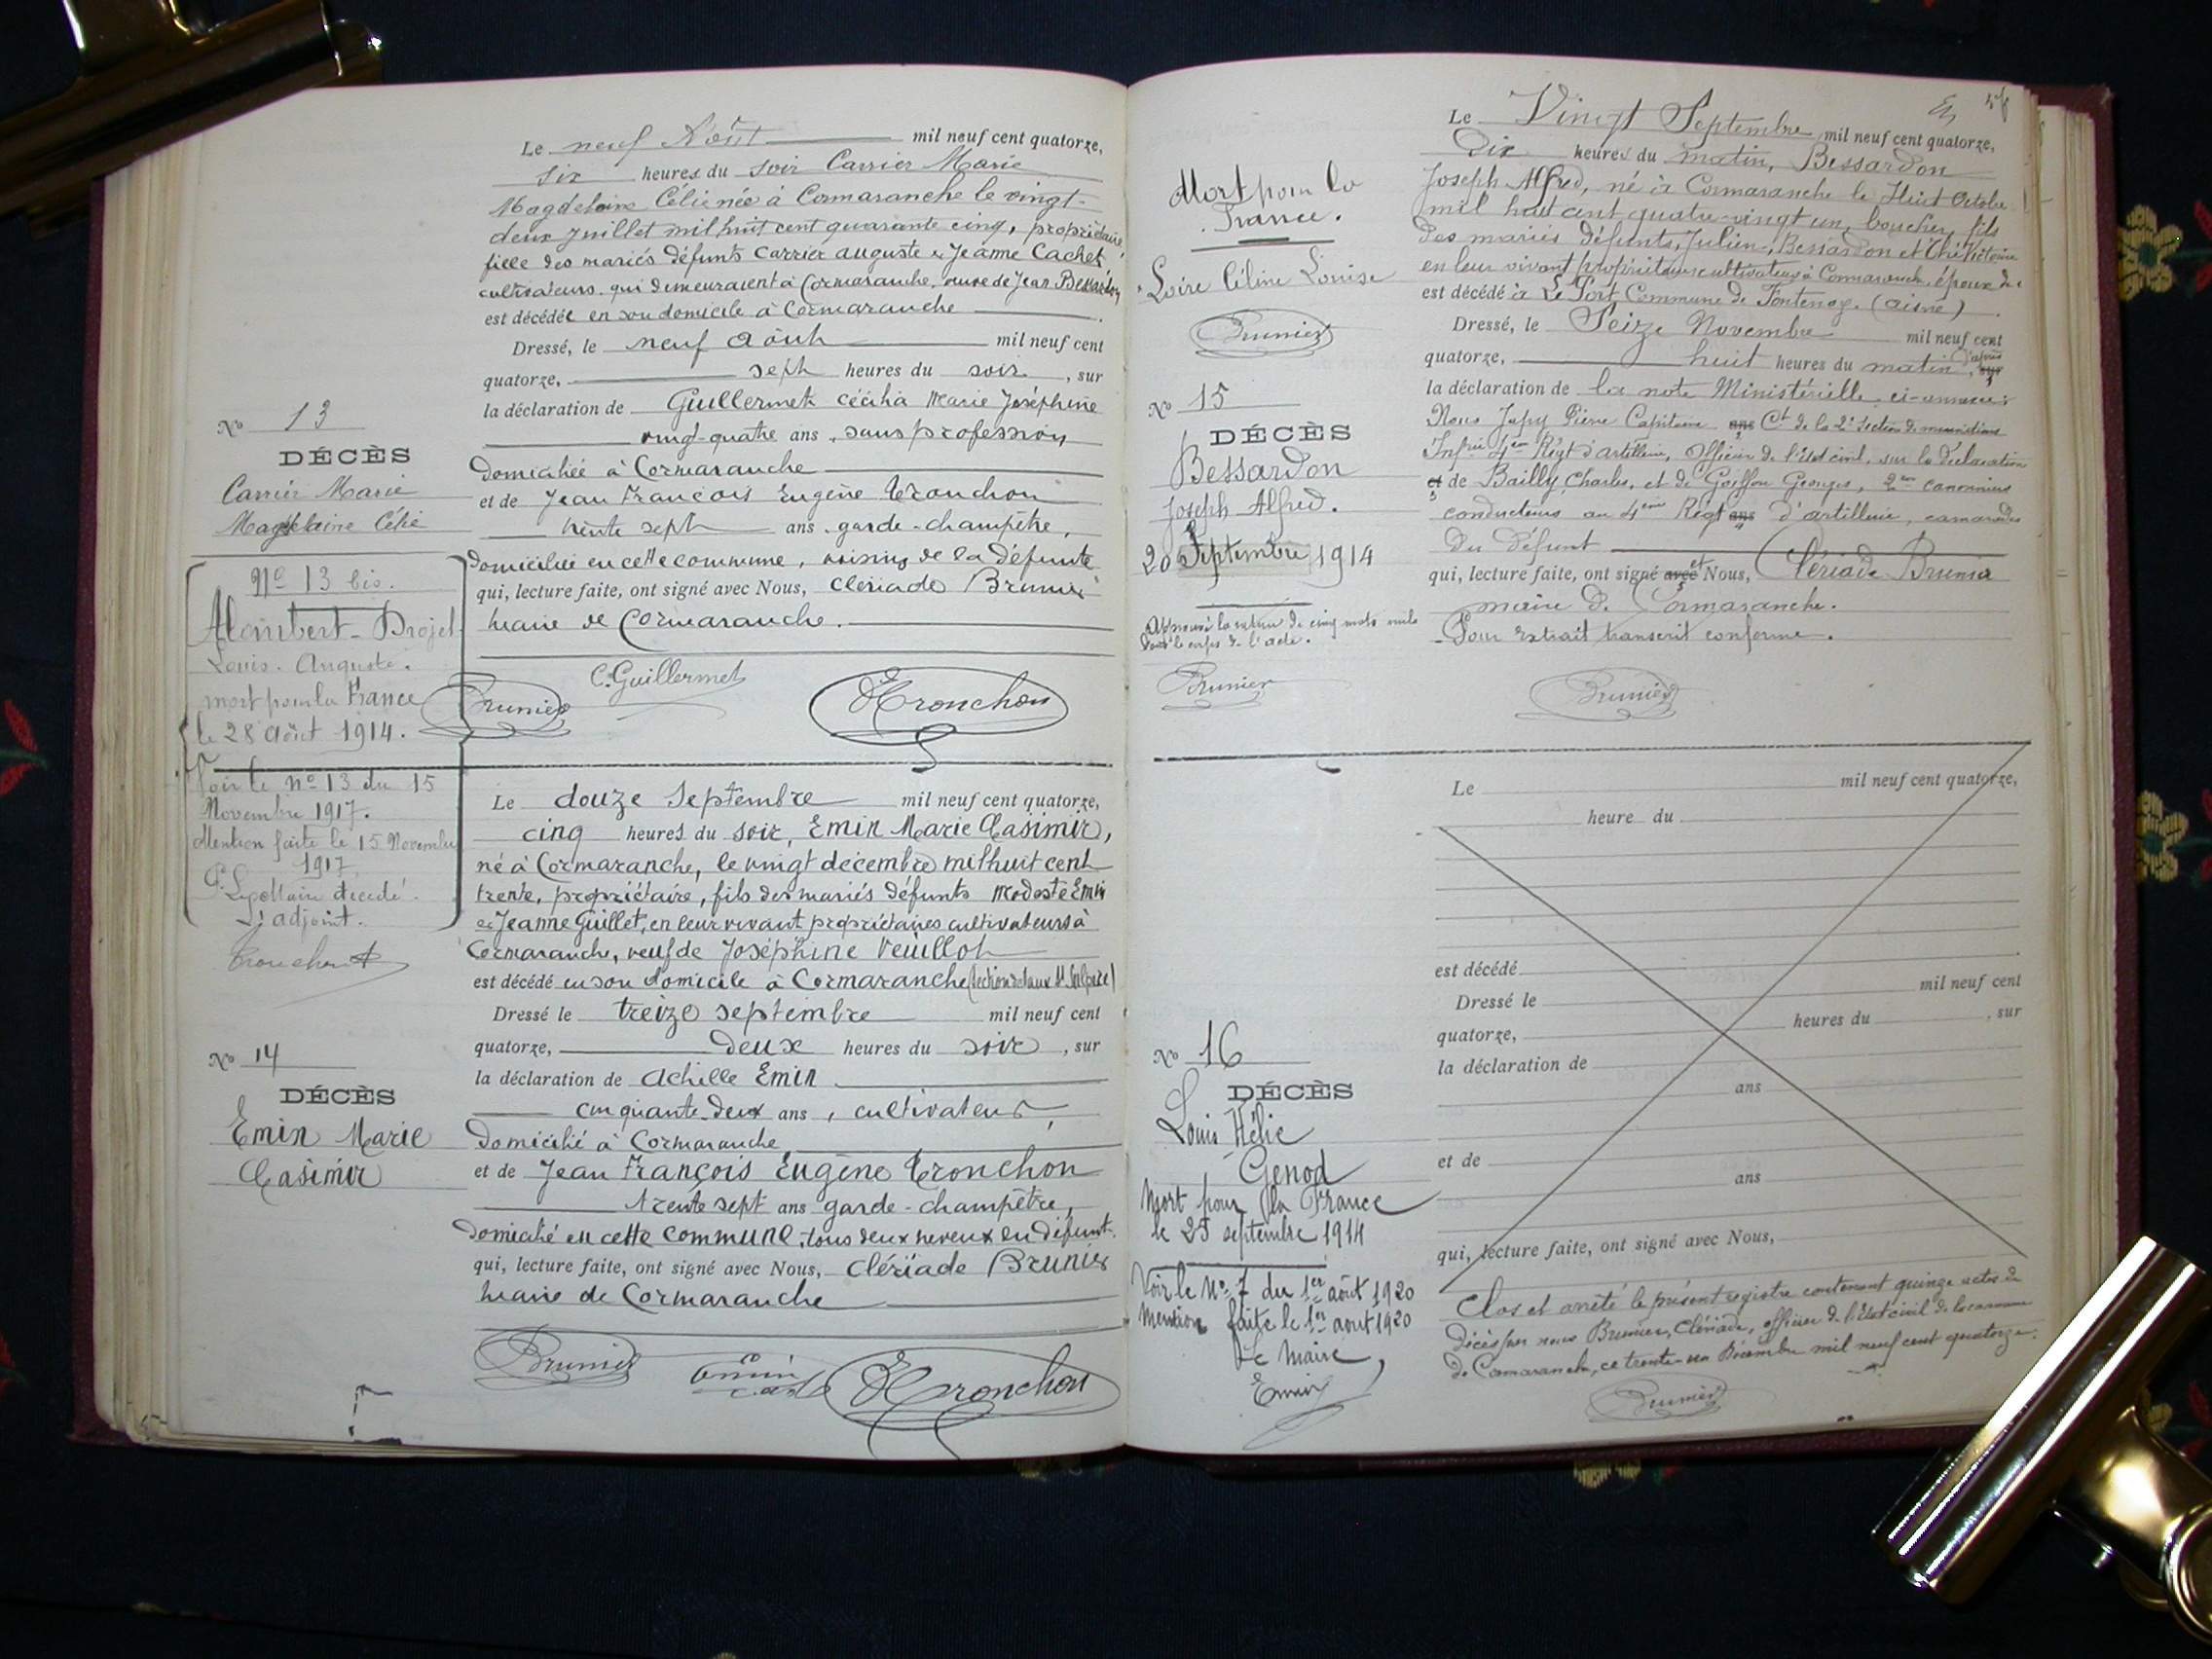 Le neuf Août mil neuf cent quatorze,
six heures du soir Carrier Marie
Magdelaine Célie née à Cormaranche le vingt-
deux Juillet mil huit cent quarante cinq, propriétaire,
fille des mariés défunts Carrier Auguste et Jeanne Cachet
cultivateurs qui demeuraient à Cormaranche, veuve de Jean Bessardon
est décédée en son domicile à Cormaranche
Dressé, le neuf Août mil neuf cent
quatorze, sept heures du soir, sur
la déclaration de Guillermet Cécilia Marie Joséphine
vingt-quatre ans, sans profession
domiciliée à Cormaranche
et de Jean François Eugène Tronchon
trente sept ans garde-champêtre,
domicilié en cette commune, voisins de la défunte
qui, lecture faite, ont signé avec Nous, Clériade Brunier
maire de Cormaranche.
C. Guillermet
Brunier
Tronchon
No 13
DÉCÈS
Carrier Marie
Magdelaine Célie
No 13 bis.
Alombert-Drojet
Louis Auguste.
mort pour la France
le 28 août 1914.
Voir le no 13 du 15
Novembre 1917.
Mention faite le 15 Novembre
1917
P. Le Maire décédé.
L'adjoint.
Tronchon
Le douze Septembre mil neuf cent quatorze,
cinq heures du soir, Emin Marie Casimir,
né à Cormaranche, le vingt décembre mil huit cent
trente, propriétaire, fils des mariés défunts Modeste Emin
et Jeanne Guillet, en leur vivant propriétaires cultivateurs à
Cormaranche, veuf de Joséphine Veuillot
est décédé en son domicile à Cormaranche
Dressé le treize septembre mil neuf cent
quatorze, deux heures du soir, sur
la déclaration de Achille Emin
cinquante-deux ans, cultivateur,
domicilié à Cormaranche
et de Jean François Eugène Tronchon
trente sept ans garde-champêtre,
domicilié en cette commune, tous deux neveux du défunt.
qui, lecture faite, ont signé avec Nous, Clériade Brunier
maire de Cormaranche
Brunier
Emin
Tronchon
No 14
DÉCÈS
Emin Marie
Casimir
Le Vingt Septembre mil neuf cent quatorze,
Dix heures du matin, Bessardon
Joseph Alfred, né à Cormaranche le Huit Octobre
mil huit cent quatre-vingt un, boucher, fils
des mariés défunts, Julien Bessardon et
en leur vivant propriétaires cultivateurs à Cormaranche, époux de
est décédé à Le Port Commune de Fontenoy. (Aisne)
Dressé, le Seize Novembre mil neuf cent
quatorze, huit heures du matin, d'après sur
la déclaration de la note Ministérielle ci-annexée:
Nous Jupy Pierre Capitaine ans Ct de la 2e Section de munitions
Infrie 4em Régt d'artillerie, Officier de l'état civil, sur la déclaration
et de Bailly, Charles, et de Goiffon Georges, 2mes canonniers
conducteurs au 4ème Régt ans d'artillerie, camarades
du défunt
qui, lecture faite, ont signé avec et Nous, Clériade Brunier
maire de Cormaranche.
Pour Extrait transcrit conforme.
Brunier
Mort pour la
France.
Loire Céline Louise
Brunier
No 15
DÉCÈS
Bessardon
Joseph Alfred.
20 Septembre 1914
Approuvé la rature de cinq mots nuls
dans le corps de l'acte.
Brunier
Le mil neuf cent quatorze,
heure du
est décédé
Dressé le mil neuf cent
quatorze, heures du , sur
la déclaration de
ans
et de
ans
qui, lecture faite, ont signé avec Nous,
No 16
DÉCÈS
Louis Hélie
Genod
Mort pour la France
le 25 septembre 1914
Voir le No 7 du 1er août 1920
Mention faite le 1er aout 1920
Le Maire,
Emin
Clos et arrêté le présent registre contenant quinze actes de
Décès par nous Brunier, Clériade, officier de l'Etat civil de la commune
de Cormaranche, ce trente-un Décembre mil neuf cent quatorze.
Brunier